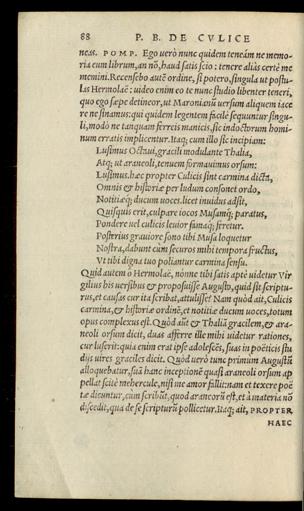 88 P. B. DE CVLICE
neas. POMP. Ego uerò nunc quidem teneám ne memo-
ria eum librum, an nõ, haud satis scio: tenere aliàs certè me
memini. Recensebo autẽ ordine, si potero, singula ut postu-
las Hermolaë: uideo enim eo te nunc studio libenter teneri,
quo ego sæpe detineor, ut Maronianũ uersum aliquem iace
re ne sinamus: qui quidem legentem facilè sequuntur singu-
li, modò ne tanquam ferreis manicis, sic indoctorum homi-
num erratis implicentur. Itaq; cum illo sic incipiam:
Lusimus Octaui, gracili modulante Thalia,
Atq; ut araneoli, tenuem formauimus orsum:
Lusimus. hæc propter Culicis sint carmina dicta,
Omnis & historiæ per ludum consonet ordo,
Notitiæq; ducum uoces. licet inuidus adsit,
Quisquis erit, culpare iocos Musamq; paratus,
Pondere uel culicis leuior famaq; feretur.
Posterius grauiore sono tibi Musa loquetur
Nostra, dabunt cùm securos mihi tempora fructus,
Vt tibi digna tuo poliantur carmina sensu.
Quid autem ò Hermolaë, nónne tibi satis aptè uidetur Vir
gilius his uersibus & proposuisse Augusto, quid sit scriptu-
rus, et causas cur ita scribat, attulisse? Nam quòd ait, Culicis
carmina, & historiæ ordinẽ, et notitiæ ducum uoces, totum
opus complexus est. Quòd aũt & Thaliã gracilem, & ara-
neoli orsum dicit, duas afferre ille mihi uidetur rationes,
cur luserit: quia enim erat ipse adolescẽs, suas in poëticis stu
dijs uires graciles dicit. Quòd uerò tunc primùm Augustũ
alloquebatur, suã hanc inceptionẽ quasi araneoli orsum ap
pellat scitè mehercule, nisi me amor fallit: nam et texere poë
tæ dicuntur, cum scribũt, quod araneorũ est, et à materia nõ
discedit, qua de se scripturũ pollicetur. Itaq; ait, PROPTER
HAEC